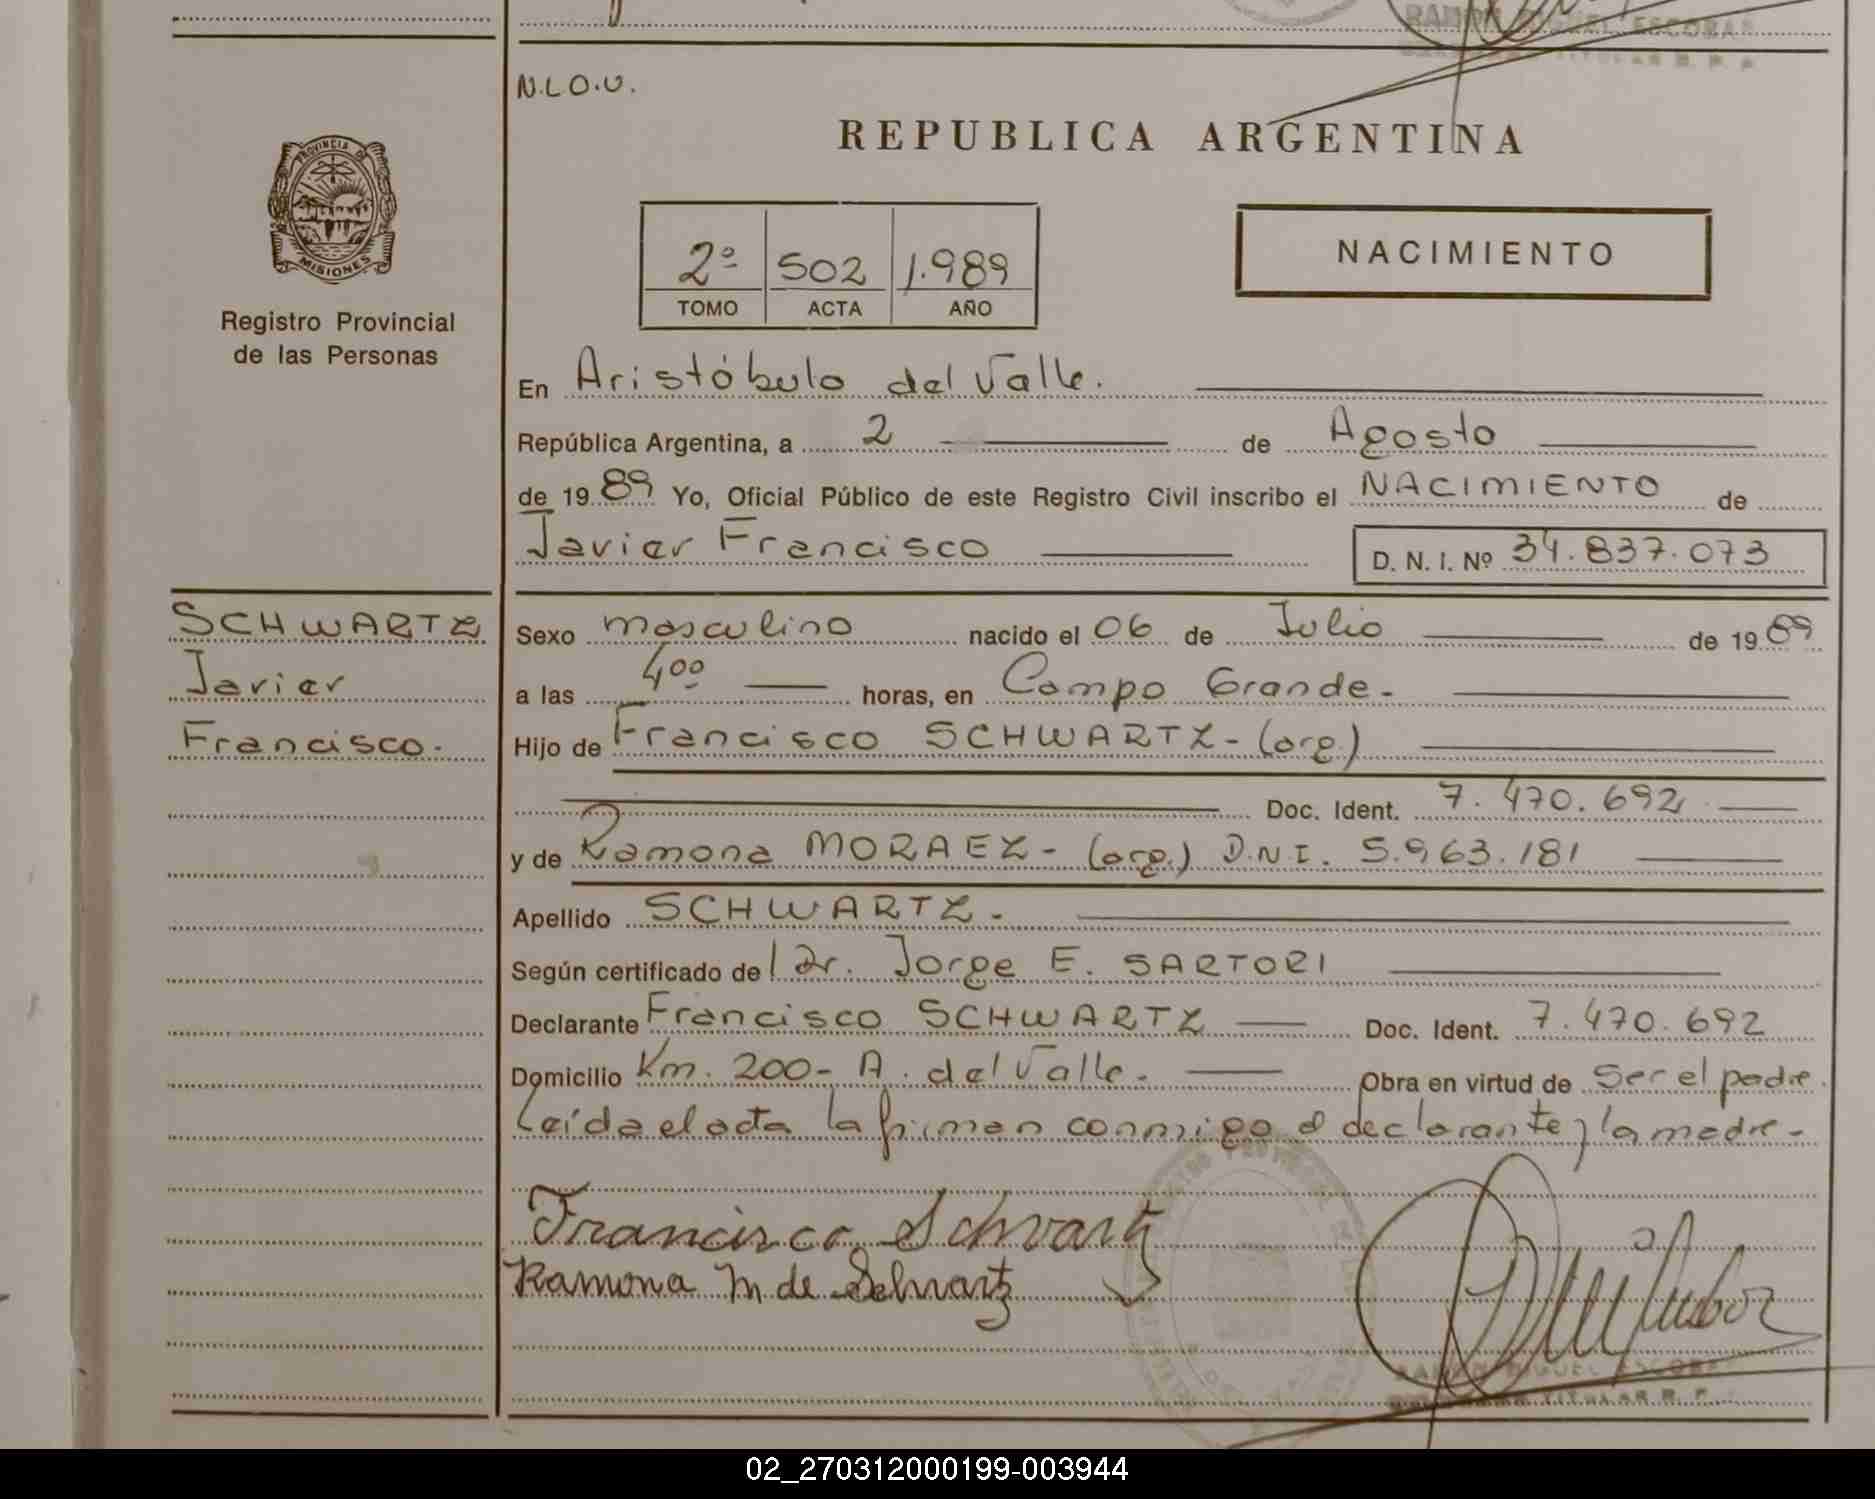 RAMON MIGUEL ESCOBAR
TITULAR R. P. P.
N.L.O.U.
REPUBLICA ARGENTINA
PROVINCIA DE
MISIONES
Registro Provincial
de las Personas
2º 502 1.989
TOMO ACTA AÑO
NACIMIENTO
En Aristóbulo del Valle.
República Argentina, a 2 de Agosto
de 1989 Yo, Oficial Público de este Registro Civil inscribo el NACIMIENTO de
Javier Francisco D. N. I. Nº 34.837.073
SCHWARTZ
Javier
Francisco.
Sexo masculino nacido el 06 de Julio de 1989
a las 4⁰⁰ horas, en Campo Grande.-
Hijo de Francisco SCHWARTZ - (arg.)
Doc. Ident. 7.470.692
y de Ramona MORAEZ - (arg.) D.N.I. 5.963.181
Apellido SCHWARTZ.
Según certificado del Dr. Jorge E. SARTORI
Declarante Francisco SCHWARTZ Doc. Ident. 7.470.692
Domicilio Km. 200- A. del Valle. Obra en virtud de ser el padre.
Leída el acta la firman conmigo el declarante y la madre.-
Francisco Schvartz
Ramona M de Schvartz
RAMON MIGUEL ESCOBAR
TITULAR R. P.
02_270312000199-003944